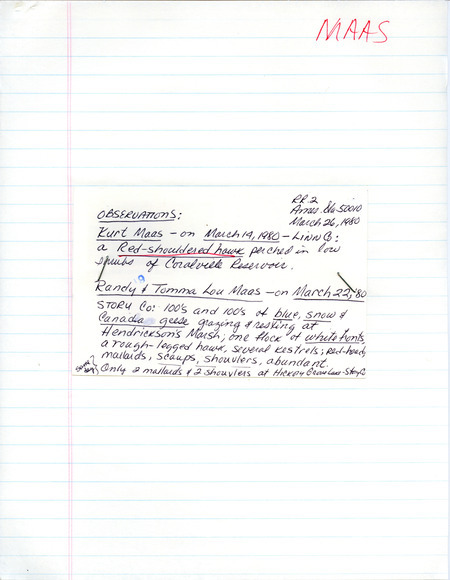 MAAS
RR.2
Ames, Ia 50010
March 26, 1980
OBSERVATIONS:
Kurt Maas - on March 14, 1980 - LINN Co:
a Red-shouldered hawk perched in low
shrubs of Coralville Reservoir.
Randy & Tomma Lou Maas - on March 22, '80
STORY Co: 100's and 100's of blue, snow &
Canadia geese grazing & resting at
Hendrickson's Marsh; one flock of whitefronts,
a rough-legged hawk, several kestrels; red-heads,
mallards, scaups, shouvlers, abundant.
Only 2 mallards & 2 shouvlers at Hickory Grove Lake - Story Co